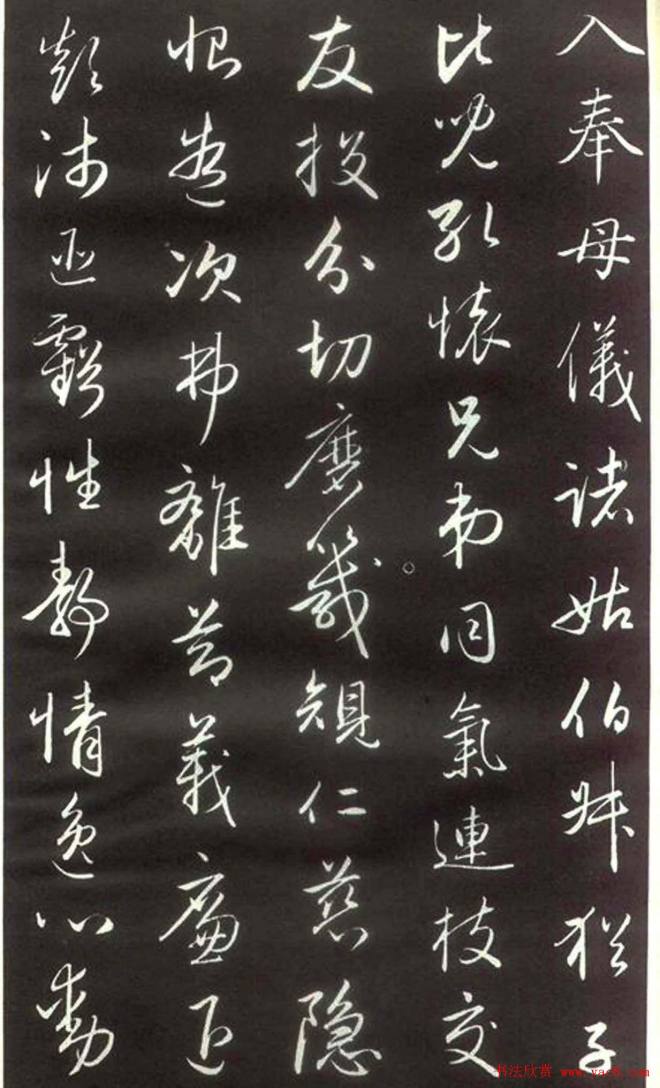 入奉母儀諸姑伯叔猶子
比兒孔懷兄弟同氣連枝交
友投分切磨箴規仁慈隱
惻造次弗離節義廉退
顛沛匪虧性靜情逸心動
书法欣赏 www.yac8.com